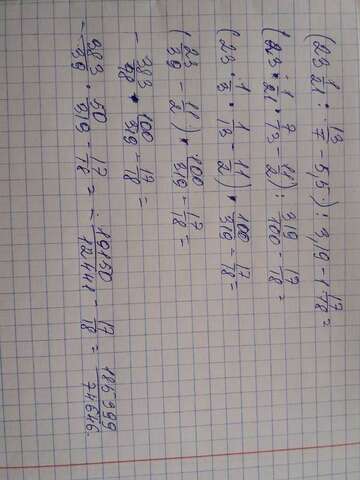 (23 1/21 : 13/7 - 5,5) : 3,19 - 1 17/18 =
(23 · 1/21 · 7/13 - 11/2) : 319/100 - 17/18 =
(23 · 1/3 · 1/13 - 11/2) · 100/319 - 17/18 =
(23/39 - 11/2) · 100/319 - 17/18 =
- 383/78 · 100/319 - 17/18 =
- 383/39 · 50/319 - 17/18 = - 19150/12441 - 17/18 = 186399/74646.